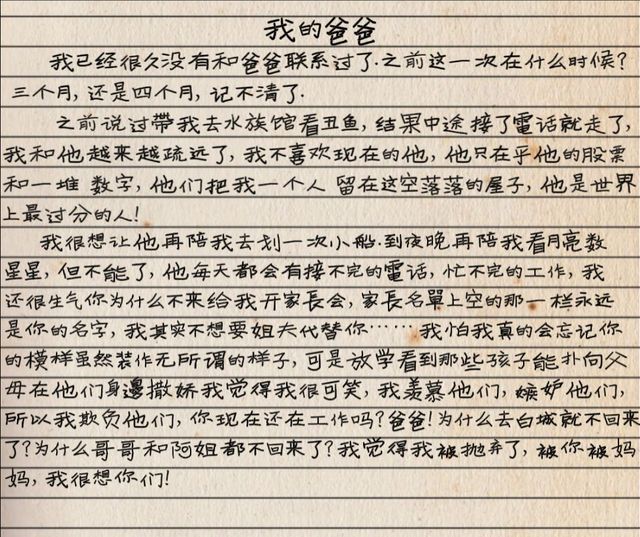 我的爸爸
我已经很久没有和爸爸联系过了.之前这一次在什么时候?
三个月,还是四个月,记不清了.
之前说过带我去水族馆看丑鱼,结果中途接了電话就走了,
我和他越来越疏远了,我不喜欢现在的他,他只在乎他的股票
和一堆数字,他们把我一个人留在这空落落的屋子,他是世界
上最过分的人!
我很想让他再陪我去划一次小船.到夜晚再陪我看月亮数
星星,但不能了,他每天都会有接不完的電话,忙不完的工作,我
还很生气你为什么不来给我开家長会,家長名單上空的那一栏永远
是你的名字,我其实不想要姐夫代替你……我怕我真的会忘记你
的模样虽然装作无所谓的样子,可是放学看到那些孩子能扑向父
母在他们身邊撒娇我觉得我很可笑,我羨慕他们,嫉妒他们,
所以我欺负他们,你现在还在工作吗?爸爸!为什么去白城就不回来
了?为什么哥哥和阿姐都不回来了?我觉得我被抛弃了,被你被妈
妈,我很想你们!